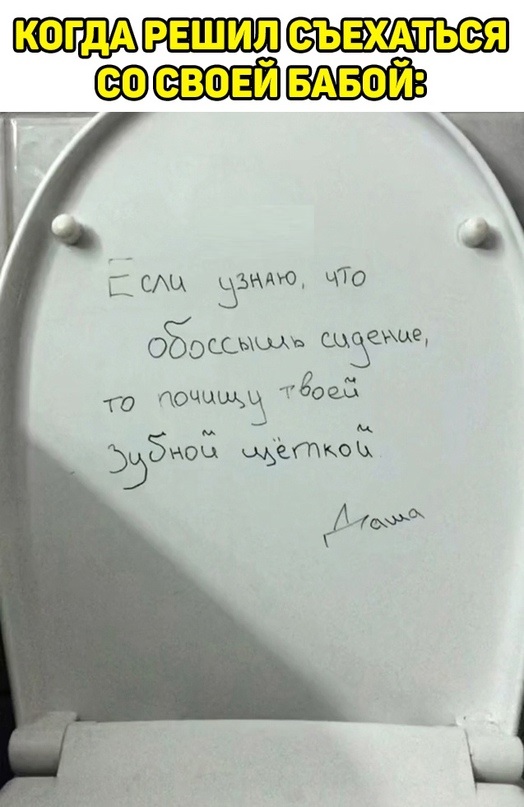 КОГДА РЕШИЛ СЪЕХАТЬСЯ
СО СВОЕЙ БАБОЙ:
Если узнаю, что
обоссышь сидение,
то почищу твоей
зубной щёткой
Даша